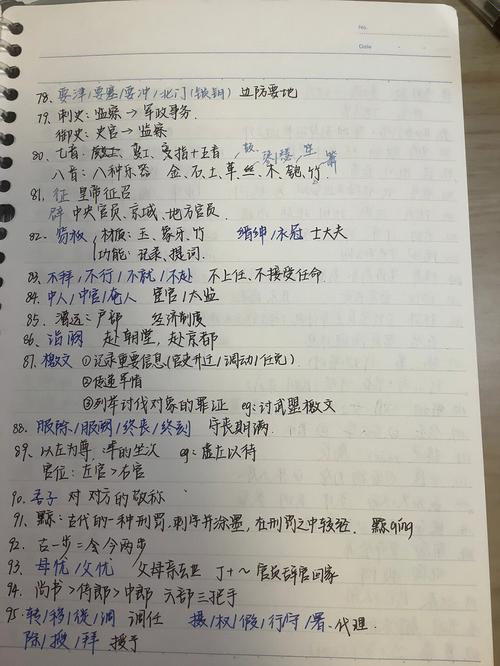 No.
Date
78. 要津/要塞/要冲/北门(锁钥) 边防要地
79. 刺史: 监察→军政事务.
御史: 史官→监察
80. 五音+
八音: 八种乐器 金、石、土、革、丝、木、匏、竹
81. 征 皇帝征召
辟 中央官员、京城、地方官员.
82. 笏板 材质: 玉、象牙、竹 缙绅/衣冠 士大夫
功能: 记录、提词.
83. 不拜/不行/不就/不赴 不上任、不接受任命
84. 中人/中官/奄人 宦官/太监
85. 漕运: 户部 经济制度
86. 诣阙 赴朝堂, 赴京都
87. 檄文 ①记录重要信息(官吏升迁/调动/任免).
②传递军情
③列举讨伐对象的罪证 eg: 讨武曌檄文
88. 服除/服阕/终丧/终制 守丧期满.
89. 以左为尊: 车的坐次 eg: 虚左以待
官位: 左官>右官
90. 吾子 对对方的敬称
91. 黥: 古代的一种刑罚, 刺字并涂墨, 在刑罚之中较轻. 黥qíng
92. 古一步=今两步
93. 母忧/父忧 父母亲去世 丁+~ 官员辞官回家
94. 尚书>侍郎>中郎 六部三把手
95. 转/移/徙/调 调任 摄/权/假/行/守/署、代理.
除/授/拜 授予